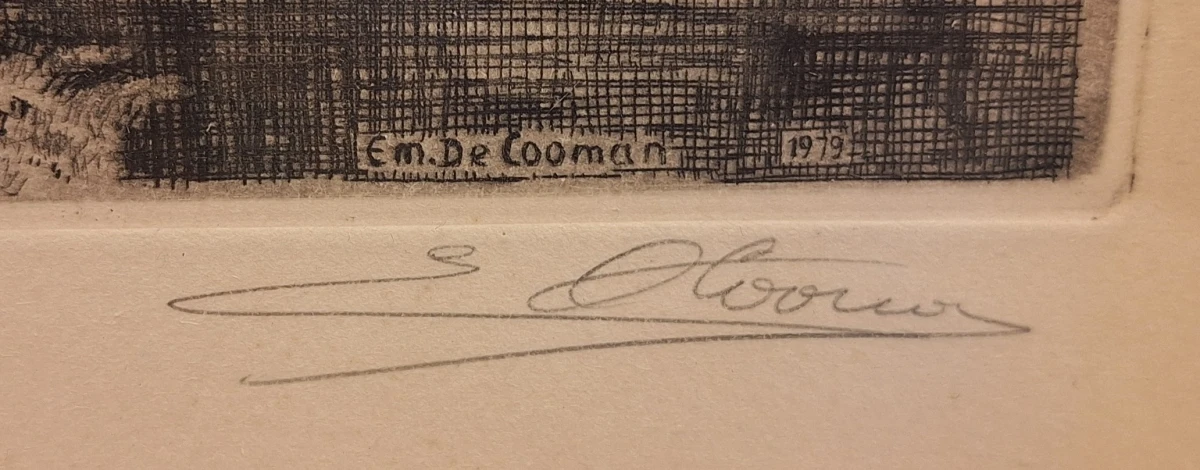 Em. De Cooman 1979
E D Cooman